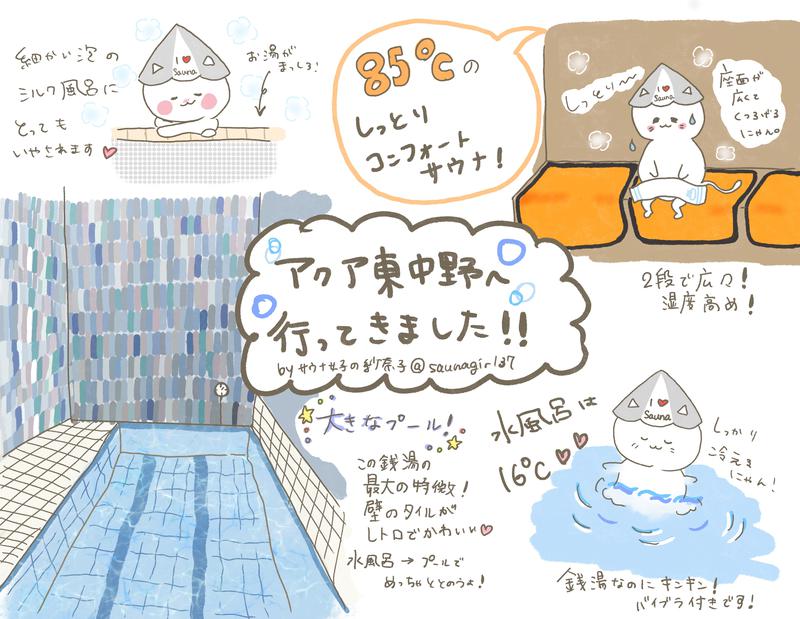 細かい泡の
シルク風呂に
とっても
いやされます
お湯が
まっしろ!
I ❤
Sauna
85℃の
しっとり
コンフォート
サウナ!
しっとり〜
I ❤
Sauna
座面が
広くて
くつろげる
にゃん。
2段で広々!
湿度高め!
アクア東中野へ
行ってきました!!
by サウナ女子の紗奈子@saunagirl37
大きなプール!
この銭湯の
最大の特徴!
壁のタイルが
レトロでかわいい
水風呂→プールで
めっちゃととのうよ!
水風呂は
16℃
I ❤
Sauna
しっかり
冷える
にゃん!
銭湯なのにキンキン!
バイブラ付きです!